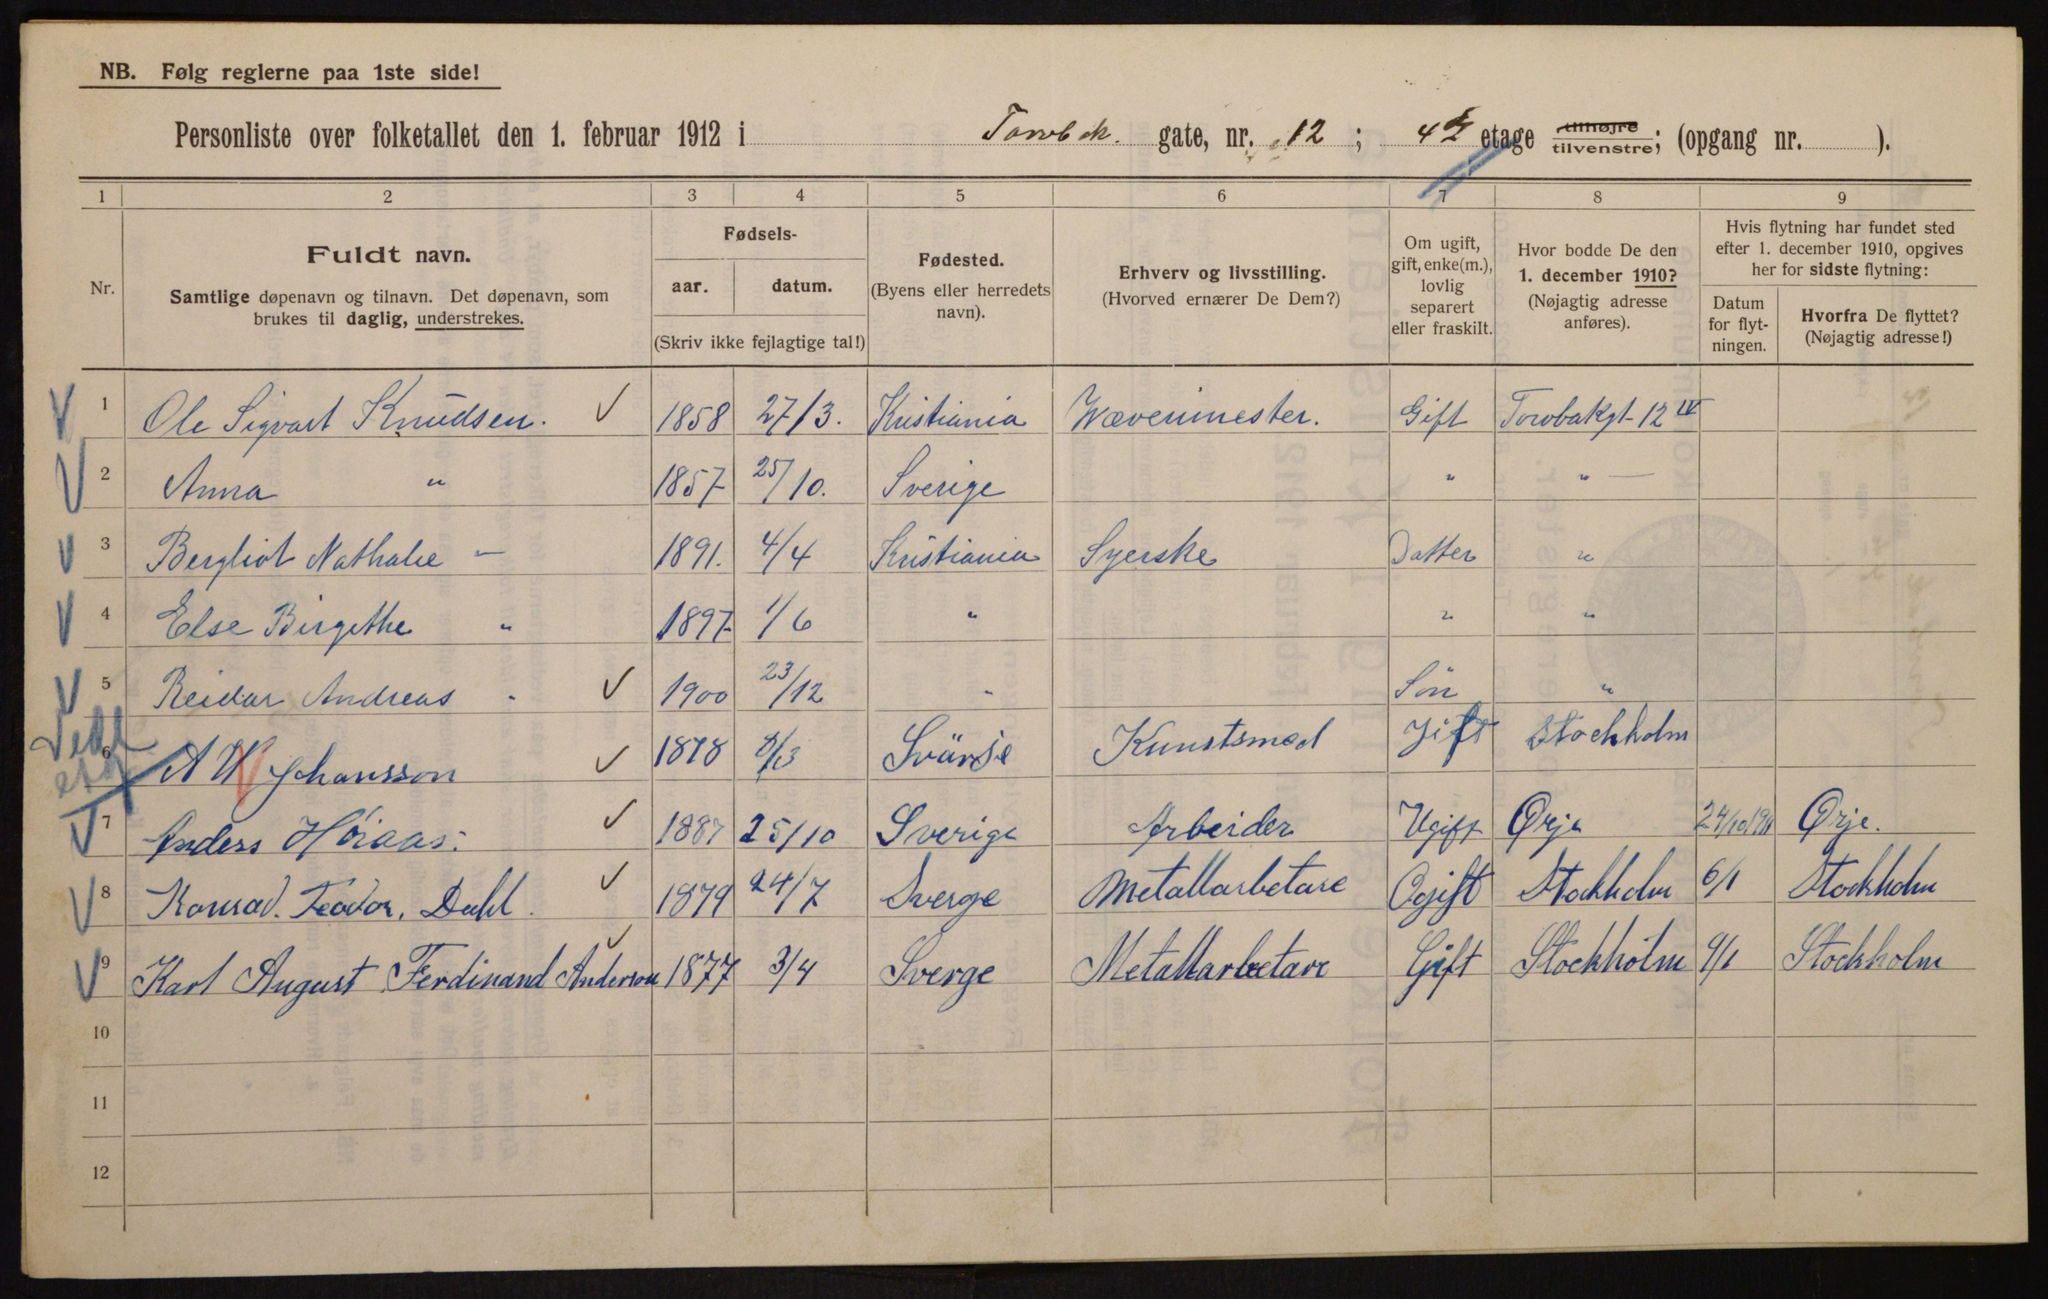 NB. Følg reglerne paa 1ste side!
Personliste over folketallet den 1. februar 1912 i Torvbak. gate, nr. 12 ; 4de etage tilhøjre tilvenstre; (opgang nr. ).
1 2 3 4 5 6 7 8 9
Nr.
Fuldt navn.
Samtlige døpenavn og tilnavn. Det døpenavn, som
brukes til daglig, understrekes.
Fødsels-
aar. datum.
(Skriv ikke fejlagtige tal!)
Fødested.
(Byens eller herredets
navn).
Erhverv og livsstilling.
(Hvorved ernærer De Dem?)
Om ugift,
gift, enke(m.),
lovlig
separert
eller fraskilt.
Hvor bodde De den
1. december 1910?
(Nøjagtig adresse
anføres).
Hvis flytning har fundet sted
efter 1. december 1910, opgives
her for sidste flytning:
Datum
for flyt-
ningen.
Hvorfra De flyttet?
(Nøjagtig adresse!)
1 Ole Sigvart Knudsen. 1858 27/3. Kristiania Wævermester. Gift Torvbakgt. 12 IV
2 Anna " 1857 25/10. Sverige " "
3 Bergliot Nathalie — 1891. 4/4 Kristiania Syerske Datter "
4 Else Birgithe " 1897 1/6 " " "
5 Reidar Andreas " 1900 23/12 " Søn "
6 A W Johansson 1878 8/3 Svärje Kunstsmed Gift Stockholm
7 Anders Höiaas. 1887 25/10 Sverige Arbeider Ugift Ørje 24/10 1911 Ørje.
8 Konrad. Teodor. Dahl. 1879 24/7 Sverge Metallarbetare Ogift Stockholm 6/1 Stockholm
9 Karl August Ferdinand Anderson 1877 3/4 Sverge Metallarbetare Gift Stockholm 9/1 Stockholm
10
11
12